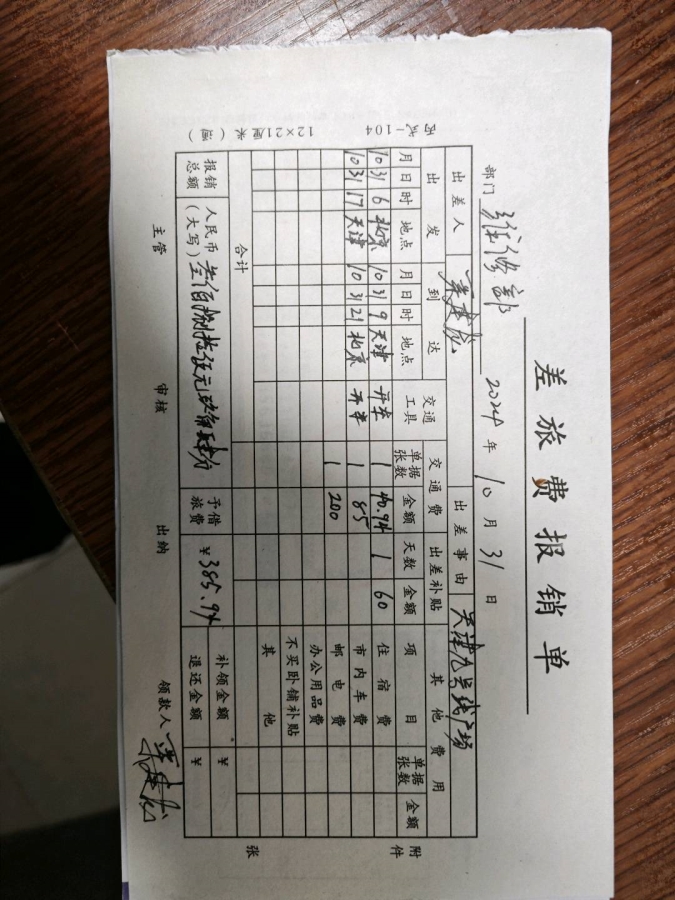 差旅费报销单
部门 维修部 2024年10月31日
出差人 出差事由 天津九号线广场
出发 到达 交通工具 交通费 出差补贴 其他费用
月 日 时 地点 月 日 时 地点 单据张数 金额 天数 金额 项目 单据张数 金额
10 31 6 北京 10 31 9 天津 开车 1 40.94 1 60 住宿费
10 31 17 天津 10 31 21 北京 开车 1 85 市内车费
1 200 邮电费
办公用品费
不买卧铺补贴
其他
合计
报销总额 人民币(大写) 叁佰捌拾伍元玖角肆分 予借旅费 ¥385.94 补领金额 ¥
退还金额 ¥
主管 审核 出纳 领款人
附件 张
丙式-104 12×21厘米(通)